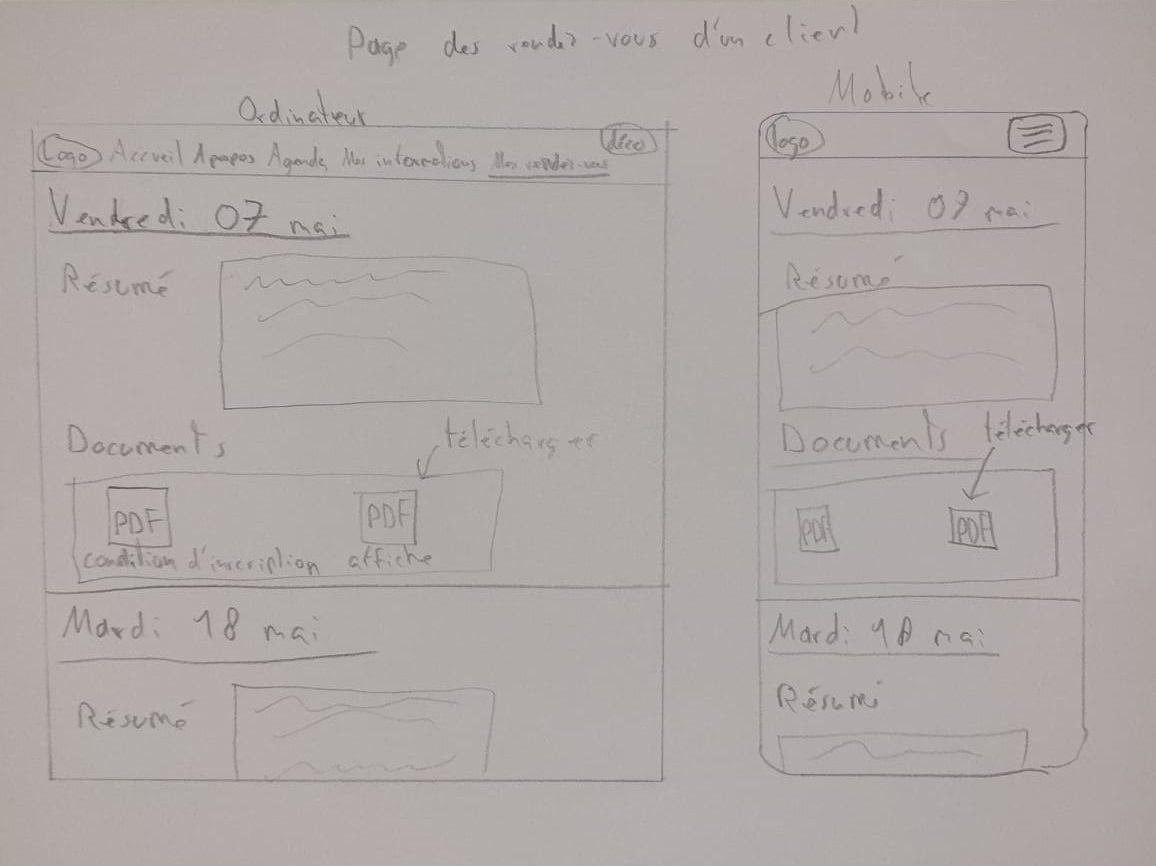 Page des rendez-vous d'un client
Ordinateur
Logo Accueil Apropos Agenda Mes informations Mes rendez-vous déco
Vendredi 07 mai
Résumé
Documents
télécharger
PDF PDF
condition d'inscription affiche
Mardi 18 mai
Résumé
Mobile
logo
Vendredi 07 mai
Résumé
Documents
télécharger
PDF PDF
Mardi 18 mai
Résumé